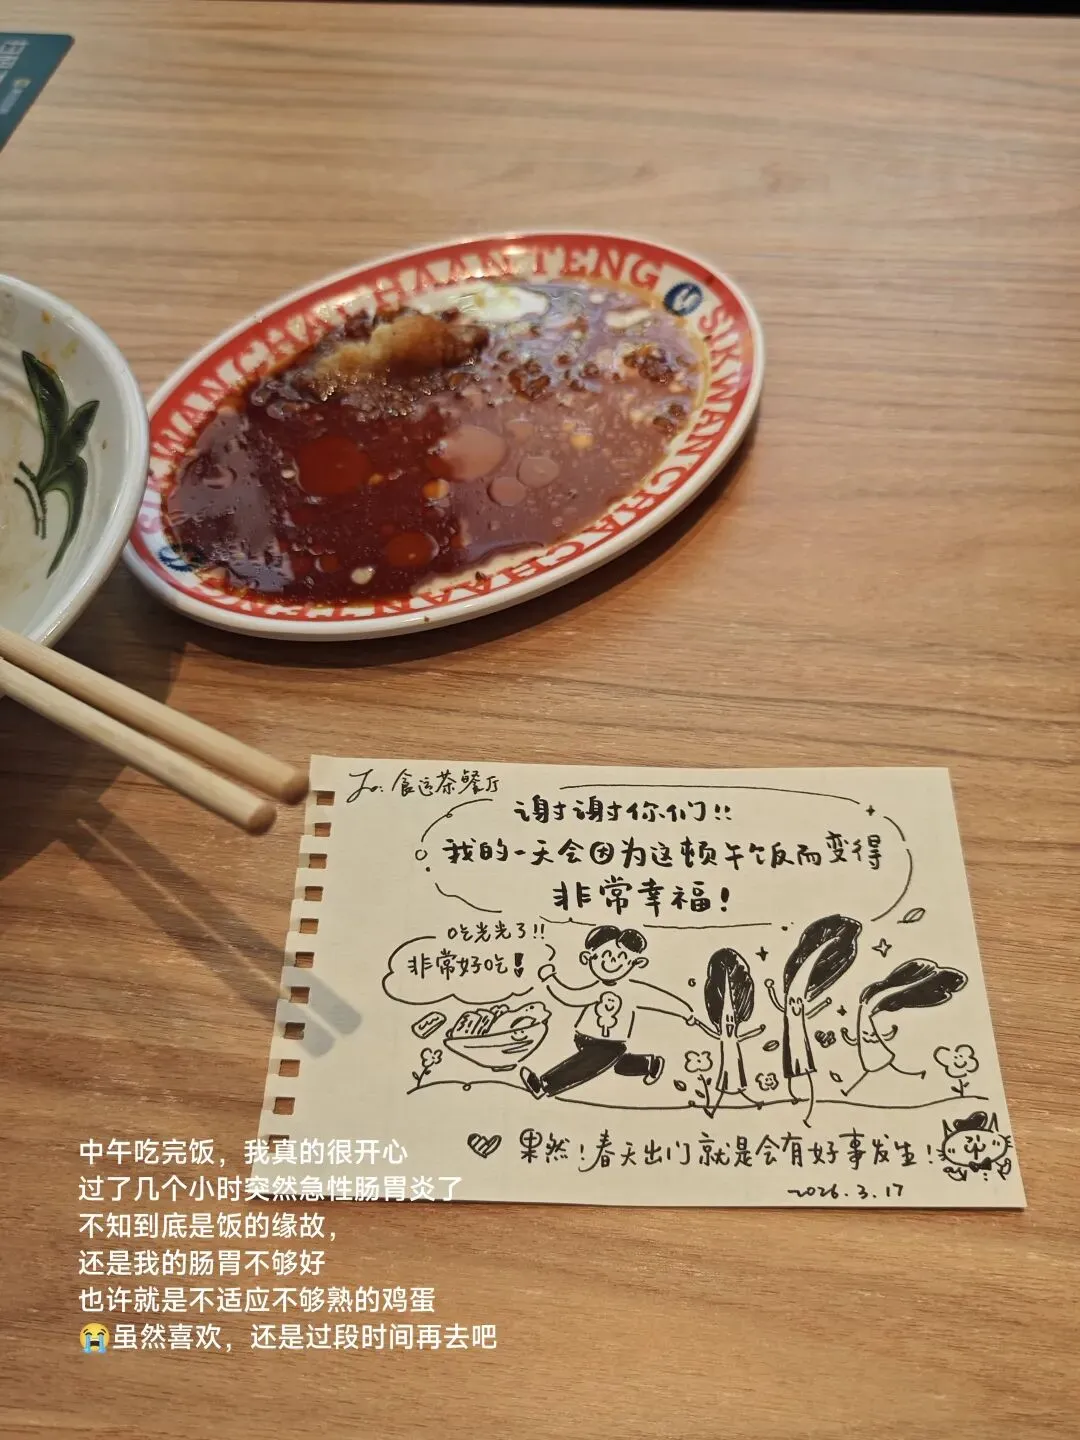 SIKWANCHACHAANTENG
SIKWANCHACHAANTENG
To: 食运茶餐厅
谢谢你们!!
我的一天会因为这顿午饭而变得
非常幸福!
吃光光了!!
非常好吃!
果然!春天出门就是会有好事发生!
2026.3.17
中午吃完饭，我真的很开心
过了几个小时突然急性肠胃炎了
不知到底是饭的缘故，
还是我的肠胃不够好
也许就是不适应不够熟的鸡蛋
😭虽然喜欢，还是过段时间再去吧